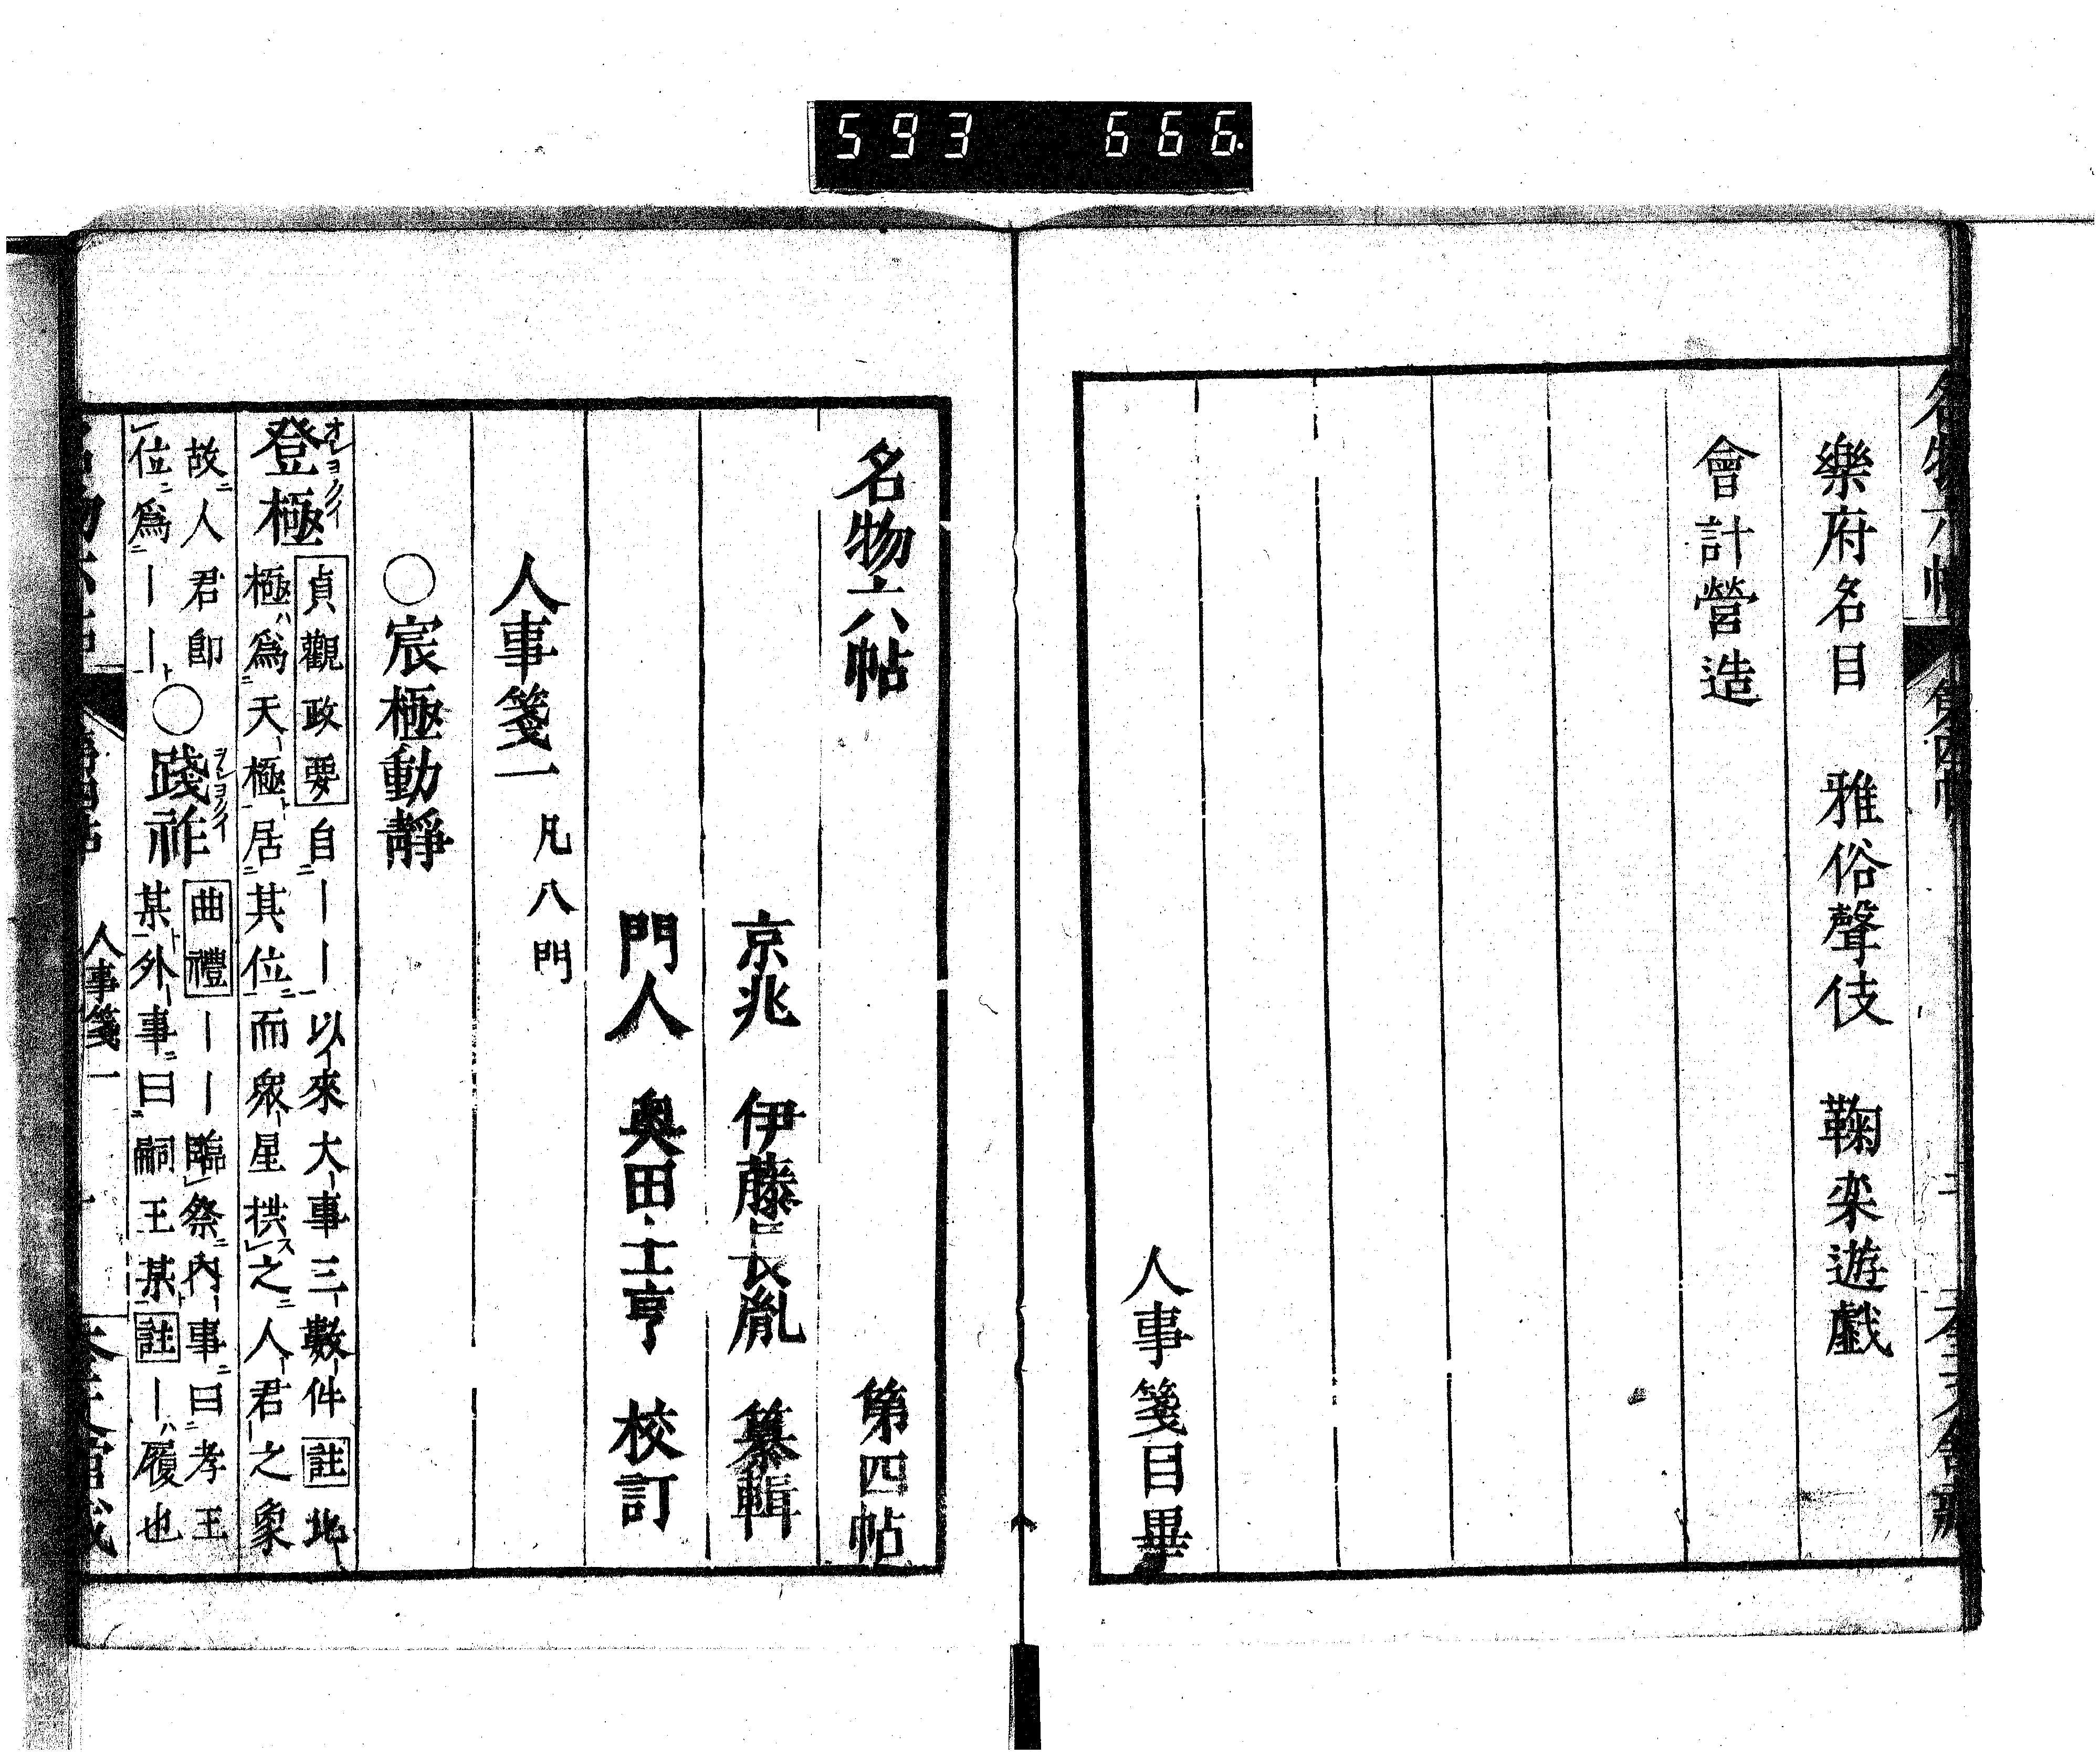 593 666.
樂府名目 雅俗聲伎 鞠栥遊戲
會計營造
人事箋目畢
名物六帖 第四帖
京兆 伊藤長胤 纂輯
門人 奥田士亨 校訂
人事箋一 凡八門
○宸極動靜
登極 貞觀政要 自｜｜以來大事三數件 註 北
極爲天極居其位而衆星拱之人君之象
故人君卽
位爲｜｜○踐祚 曲禮 ｜｜臨祭内事曰孝王
某外事曰嗣王某 註 ｜履也
人事箋一